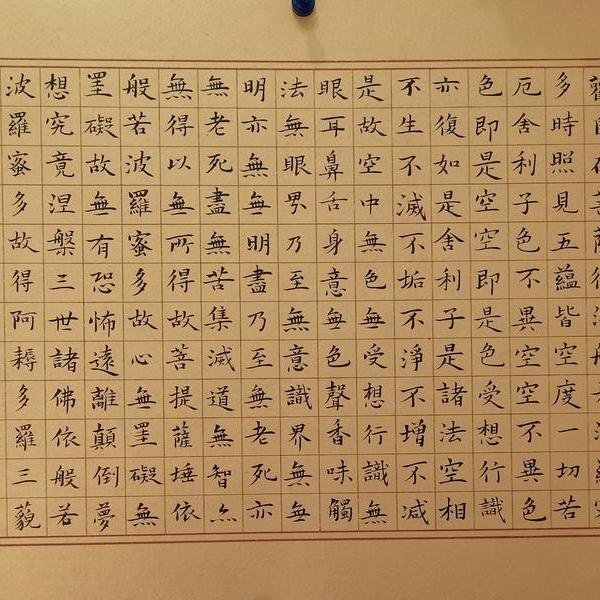 多時照見五蘊皆空度一切苦
厄舍利子色不異空空不異色
色即是空空即是色受想行識
亦復如是舍利子是諸法空相
不生不滅不垢不淨不增不減
是故空中無色無受想行識無
眼耳鼻舌身意無色聲香味觸
法無眼界乃至無意識界無無
明亦無無明盡乃至無老死亦
無老死盡無苦集滅道無智亦
無得以無所得故菩提薩埵依
般若波羅蜜多故心無罣礙無
罣礙故無有恐怖遠離顛倒夢
想究竟涅槃三世諸佛依般若
波羅蜜多故得阿耨多羅三藐